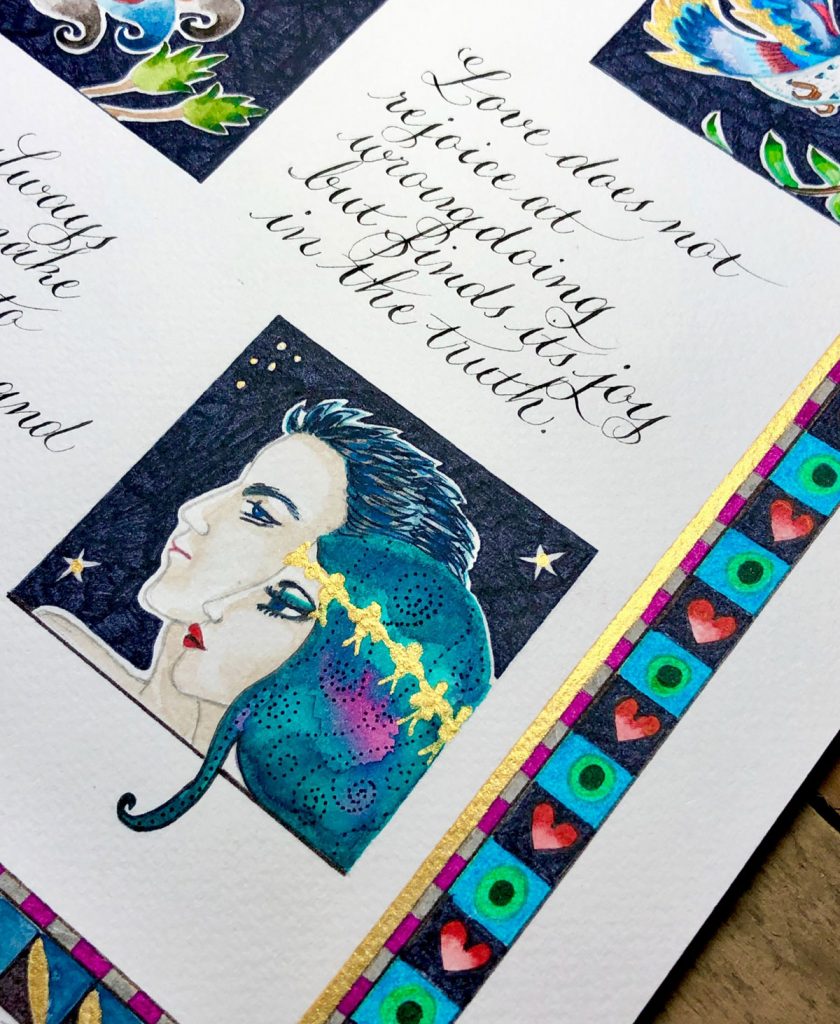 Always
make
to
and
Love does not
rejoice at
wrongdoing
but finds its joy
in the truth.